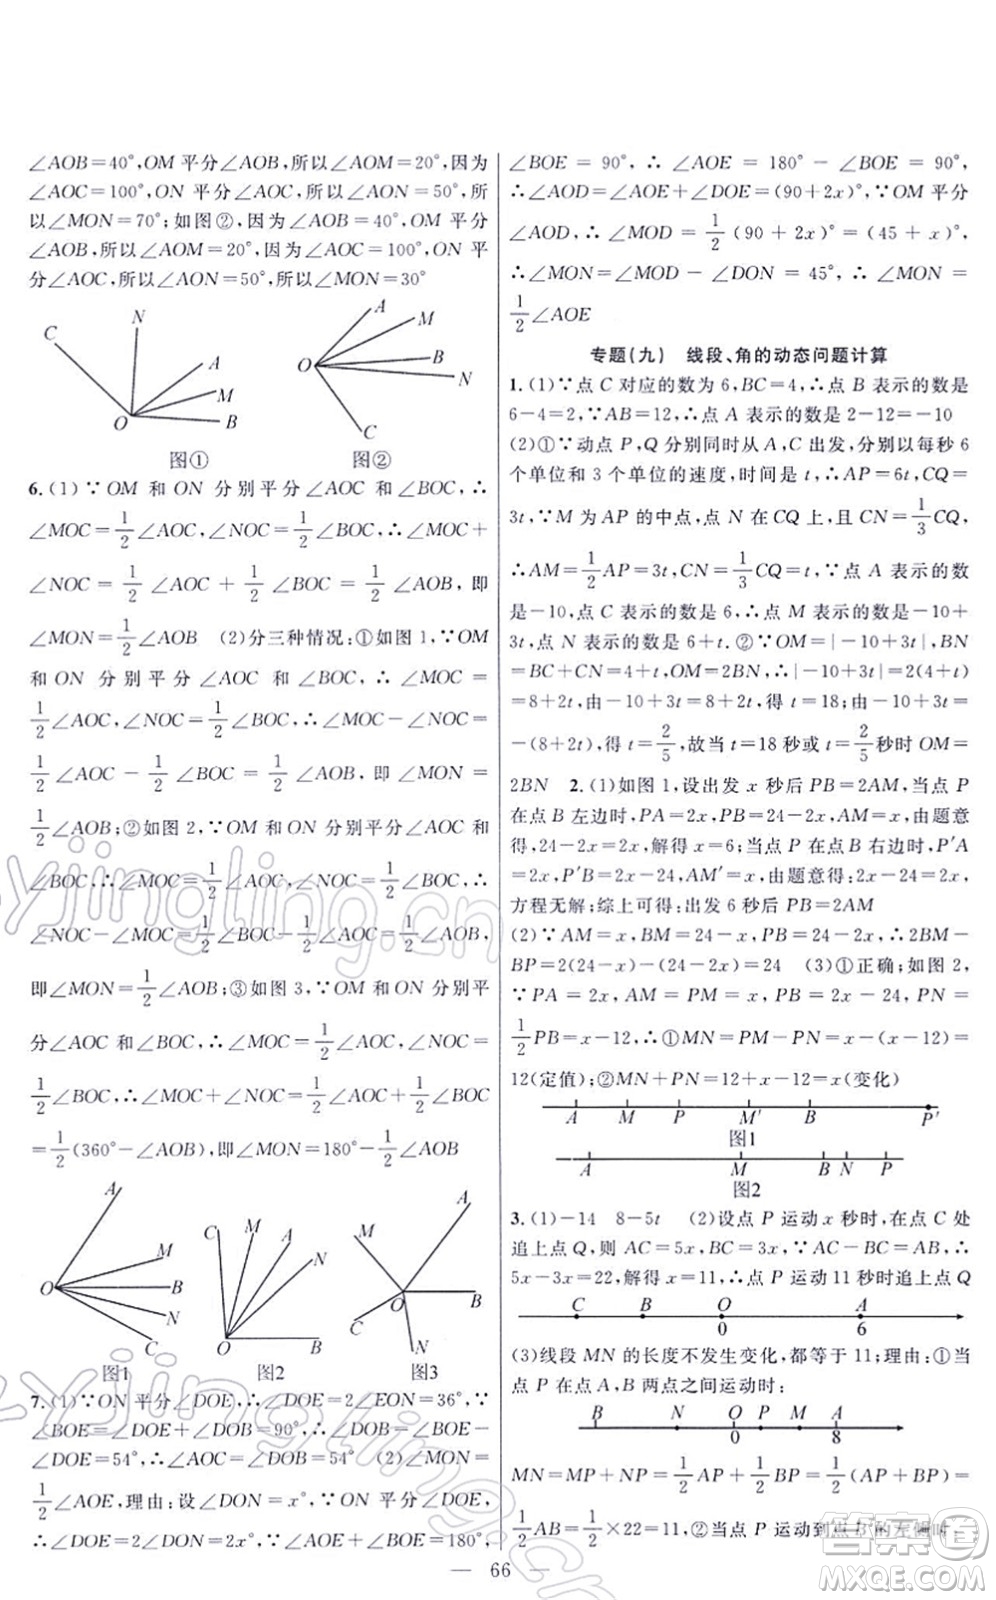 ∠AOB=40°,OM平分∠AOB,所以∠AOM=20°,因为
∠AOC=100°,ON平分∠AOC,所以∠AON=50°,所
以∠MON=70°;如图②,因为∠AOB=40°,OM平分
∠AOB,所以∠AOM=20°,因为∠AOC=100°,ON平
分∠AOC,所以∠AON=50°,所以∠MON=30°
C N A M B O
图①
A M B N O C
图②
6.(1)∵OM和ON分别平分∠AOC和∠BOC,∴
∠MOC=1/2∠AOC,∠NOC=1/2∠BOC,∴∠MOC+
∠NOC=1/2∠AOC+1/2∠BOC=1/2∠AOB,即
∠MON=1/2∠AOB (2)分三种情况:①如图1,∵OM
和ON分别平分∠AOC和∠BOC,∴∠MOC=
1/2∠AOC,∠NOC=1/2∠BOC,∴∠MOC-∠NOC=
1/2∠AOC-1/2∠BOC=1/2∠AOB,即∠MON=
1/2∠AOB;②如图2,∵OM和ON分别平分∠AOC和
∠BOC,∴∠MOC=1/2∠AOC,∠NOC=1/2∠BOC,∴
∠NOC-∠MOC=1/2∠BOC-1/2∠AOC=1/2∠AOB,
即∠MON=1/2∠AOB;③如图3,∵OM和ON分别平
分∠AOC和∠BOC,∴∠MOC=1/2∠AOC,∠NOC=
1/2∠BOC,∴∠MOC+∠NOC=1/2∠AOC+1/2∠BOC
=1/2(360°-∠AOB),即∠MON=180°-1/2∠AOB
A M B N C O
图1
C M A N B O
图2
M A B N C O
图3
7.(1)∵ON平分∠DOE,∴∠DOE=2∠EON=36°,∵
∠BOE=∠DOE+∠DOB=90°,∴∠DOB=∠BOE-
∠DOE=54°,∴∠AOC=∠DOB=54° (2)∠MON=
1/2∠AOE,理由:设∠DON=x°,∵ON平分∠DOE,
∴∠DOE=2∠DON=2x°,∵∠AOE+∠BOE=180°,
∠BOE=90°,∴∠AOE=180°-∠BOE=90°,
∴∠AOD=∠AOE+∠DOE=(90+2x)°,∵OM平分
∠AOD,∴∠MOD=1/2(90+2x)°=(45+x)°,
∴∠MON=∠MOD-∠DON=45°,∴∠MON=
1/2∠AOE
专题(九) 线段、角的动态问题计算
1.(1)∵点C对应的数为6,BC=4,∴点B表示的数是
6-4=2,∵AB=12,∴点A表示的数是2-12=-10
(2)①∵动点P,Q分别同时从A,C出发,分别以每秒6
个单位和3个单位的速度,时间是t,∴AP=6t,CQ=
3t,∵M为AP的中点,点N在CQ上,且CN=1/3CQ,
∴AM=1/2AP=3t,CN=1/3CQ=t,∵点A表示的数
是-10,点C表示的数是6,∴点M表示的数是-10+
3t,点N表示的数是6+t.②∵OM=|-10+3t|,BN
=BC+CN=4+t,OM=2BN,∴|-10+3t|=2(4+t)
=8+2t,由-10+3t=8+2t,得t=18;由-10+3t=
-(8+2t),得t=2/5,故当t=18秒或t=2/5秒时OM=
2BN 2.(1)如图1,设出发x秒后PB=2AM,当点P
在点B左边时,PA=2x,PB=24-2x,AM=x,由题意
得,24-2x=2x,解得x=6;当点P在点B右边时,P'A
=2x,P'B=2x-24,AM'=x,由题意得:2x-24=2x,
方程无解;综上可得:出发6秒后PB=2AM
(2)∵AM=x,BM=24-x,PB=24-2x,∴2BM-
BP=2(24-x)-(24-2x)=24 (3)①正确;如图2,
∵PA=2x,AM=PM=x,PB=2x-24,PN=
1/2PB=x-12,∴①MN=PM-PN=x-(x-12)=
12(定值);②MN+PN=12+x-12=x(变化)
A M P M' B P'
图1
A M B N P
图2
3.(1)-14 8-5t (2)设点P运动x秒时,在点C处
追上点Q,则AC=5x,BC=3x,∵AC-BC=AB,∴
5x-3x=22,解得x=11,∴点P运动11秒时追上点Q
C B O A
0 6
(3)线段MN的长度不发生变化,都等于11;理由:①当
点P在点A,B两点之间运动时:
B N O P M A
0 8
MN=MP+NP=1/2AP+1/2BP=1/2(AP+BP)=
1/2AB=1/2×22=11,②当点P运动到点B的左侧时
— 66 —
yjingling.cn
答案圈
MXQE.COM